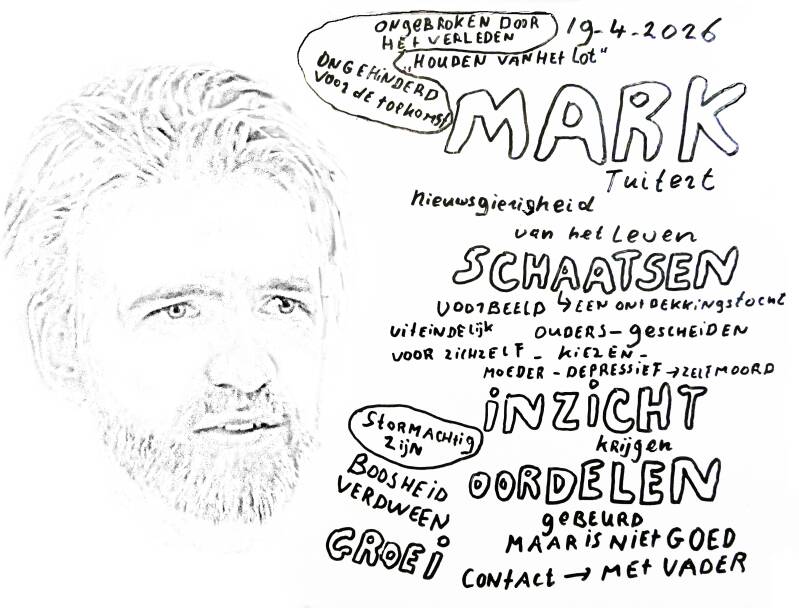 ONGEBROKEN DOOR
HET VERLEDEN
19-4-2026
"HOUDEN VAN HET LOT"
ONGEHINDERD
VOOR DE TOEKOMST
MARK
Tuitert
Nieuwsgierigheid
van het Leven
SCHAATSEN
VOORBEELD ↳ EEN ONTDEKKINGSTOCHT
UITEINDELIJK OUDERS - GESCHEIDEN
VOOR ZICHZELF - KIEZEN -
MOEDER - DEPRESSIEF → ZELFMOORD
INZICHT
KRIJGEN
STORMACHTIG
ZIJN
OORDELEN
BOOSHEID
VERDWEEN
GROEI
GEBEURD
MAAR IS NIET GOED
CONTACT → MET VADER